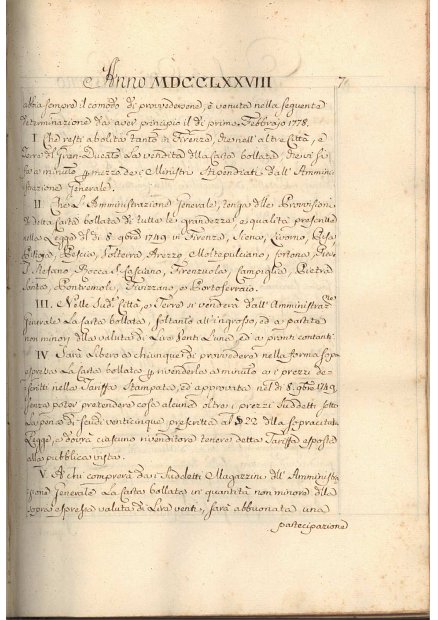 Anno MDCCLXXVIII
7
abbia sempre il comodo di provvedersene, è venuta nella seguente
Determinazione da aver principio il dì primo Febbrajo 1778.
I. Che resti abolita tanto di Firenze, che nell'altre Città, e
Terre del Gran-Ducato La vendita della Carta bollata, che vi si
fa a minuto per mezzo dei Ministri Stipendiati dall'Ammini-
strazione Generale.
II. Che L'Amministrazione Generale, tenga delle Provvisioni
di detta Carta bollata di tutte le grandezze, e qualità prescritte
nella Legge del dì 8. 9bre 1749. in Firenze, Siena, Livorno, Pisa,
Pistoja, Pescia, Volterra Arezzo Montepulciano, Cortona,
S. Stefano Rocca S. Casciano, Firenzuola, Campiglia, Pietra
Santa, Pontremoli, Fivizzano, e Portoferraio.
III. Nelle Sudd. Città, e Terre si venderà dall'Amministraz.ne
Generale La Carta bollata, soltanto all'ingrosso, ed a partite
non minori della valuta di Lire Venti L'una, ed a pronti contanti.
IV Sarà Libero a chiunque di provvedersi nella forma sop.a
espressa La Carta bollata per rivenderla a minuto a i prezzi de-
scritti nella Tariffa Stampata, ed approvata nel dì 8. 9bre 1749.
senza poter pretendere cosa alcuna oltre i prezzi Suddetti sotto
La pena di Scudi venticinque prescritta al § 22 della sopracitata
Legge, e dovrà ciascuno rivenditore tenere detta Tariffa esposta
alla pubblica vista.
V. A chi comprerà dai Suddetti Magazzini dell'Amministra-
zione Generale La Carta bollata in quantità non minore della
sopra espressa valuta di Lire venti, sarà abbuonata una
partecipazione